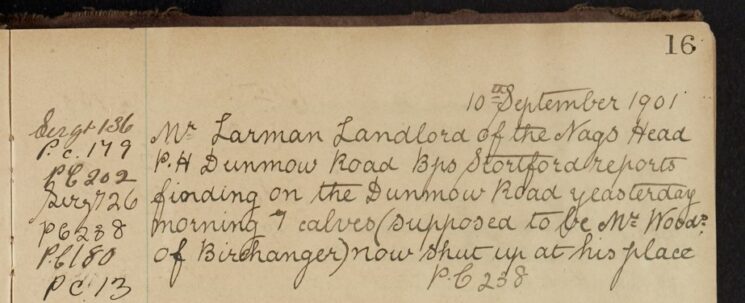 16
10th September 1901
Sergt 136
P.C. 179
PC 202
Serg 726
PC 288
P.C 180
PC 13
Mr Larman Landlord of the Nags Head
P.H Dunmow Road Bps Stortford reports
finding on the Dunmow Road yeasterday
morning 7 calves (supposed to be Mr Woods
of Birchanger) now shut up at his place
P.C 238